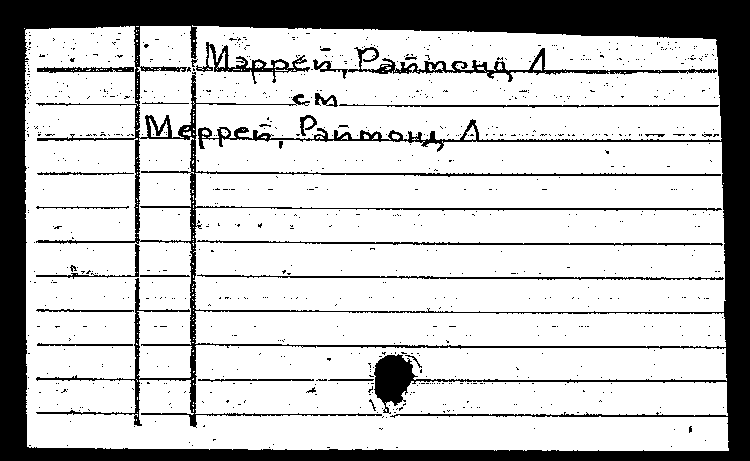 Мэррей, Раймонд Л
см
Меррей, Раймонд Л